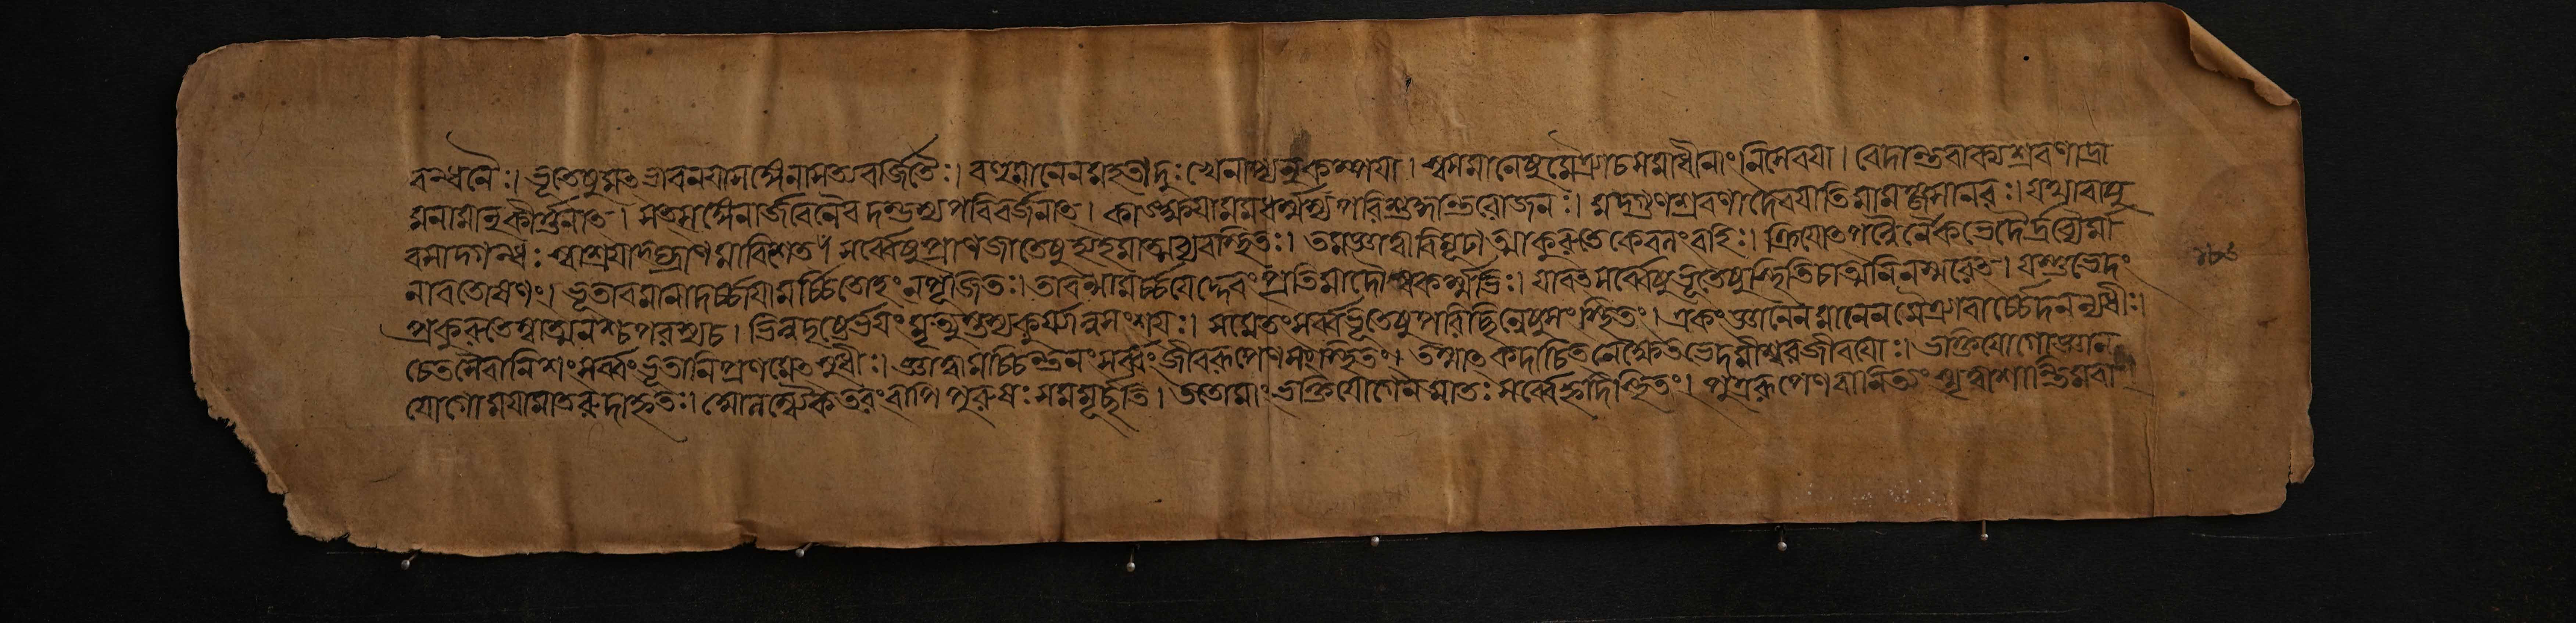 বন্ধনৈঃ। ভূতেষু মৎভাবনয়া সঙ্গেনাসত্যবর্জিতৈঃ। বহুমানেন মহতাং দুঃখেনাপ্যনুকম্পয়া। স্বসমানেষু মৈত্র্যা চ সমাধীনাং নিসেবয়া। বেদান্তবাক্যশ্রবণান্মা
মনামানুকীর্ত্তনাৎ। সৎসঙ্গেনার্জবেনৈব দণ্ডস্য পবিবর্জনাৎ। কাঙ্ক্ষয়া মম ধর্ম্মস্য পরিশুদ্ধান্তরোজনঃ। মদ্গুণশ্রবণাদেব যাতি মামঞ্জসা নরঃ। যথা বায়ু
বসাদ্গন্ধঃ স্বাশ্রয়াদ্ঘ্রাণমাবিশেৎ সর্ব্বেষু প্রাণজাতেষু হ্যহমাত্মা ব্যবস্থিতঃ। তমজ্ঞাত্বা বিমূঢ়াত্মা কুরুতে কেবলং বহিঃ। ক্রিয়োৎপন্নৈর্নৈকভেদৈর্দ্রব্যৈর্মা
নাবতোষণং। ভূতাবমানাদর্চ্চায়ামর্চ্চিতোহং ন পূজিতঃ। তাবন্মামর্চ্চয়েদ্দেবং প্রতিমাদৌ স্বকর্ম্মভিঃ। যাবৎ সর্ব্বেষু ভূতেষু স্থিতং চাত্মনি ন স্মরেৎ। যস্তু ভেদং
প্রকুরুতে স্বাত্মনশ্চ পরস্য চ। ভিন্নদৃষ্টের্ভয়ং মৃত্যুস্তস্য কুর্য্যান্ন সংশয়ঃ। মামেকং সর্ব্বভূতেষু পরিচ্ছিন্নেষু সংস্থিতং। একং জ্ঞানেন মানেন মৈত্র্যা বার্চ্চেদনন্যধীঃ।
চেতসৈবানিশং সর্ব্বং ভূতানি প্রণমেৎ সুধীঃ। জ্ঞাত্বা মাং চিন্তনং সর্ব্বং জীবরূপেণ সংস্থিতং। তস্মাৎ কদাচিত নেক্ষেত ভেদমীশ্বরজীবয়োঃ। ভক্তিযোগো জ্ঞান
যোগো ময়া মাতরুদাহৃতঃ। আলম্ব্যৈকতরং বাপি পুরুষঃ সমমৃচ্ছতি। ততো মাং ভক্তিযোগেন মাতঃ সর্ব্বহৃদিস্থিতং। পুত্ররূপেণ বা নিত্যং স্মৃত্বা শান্তিমবা